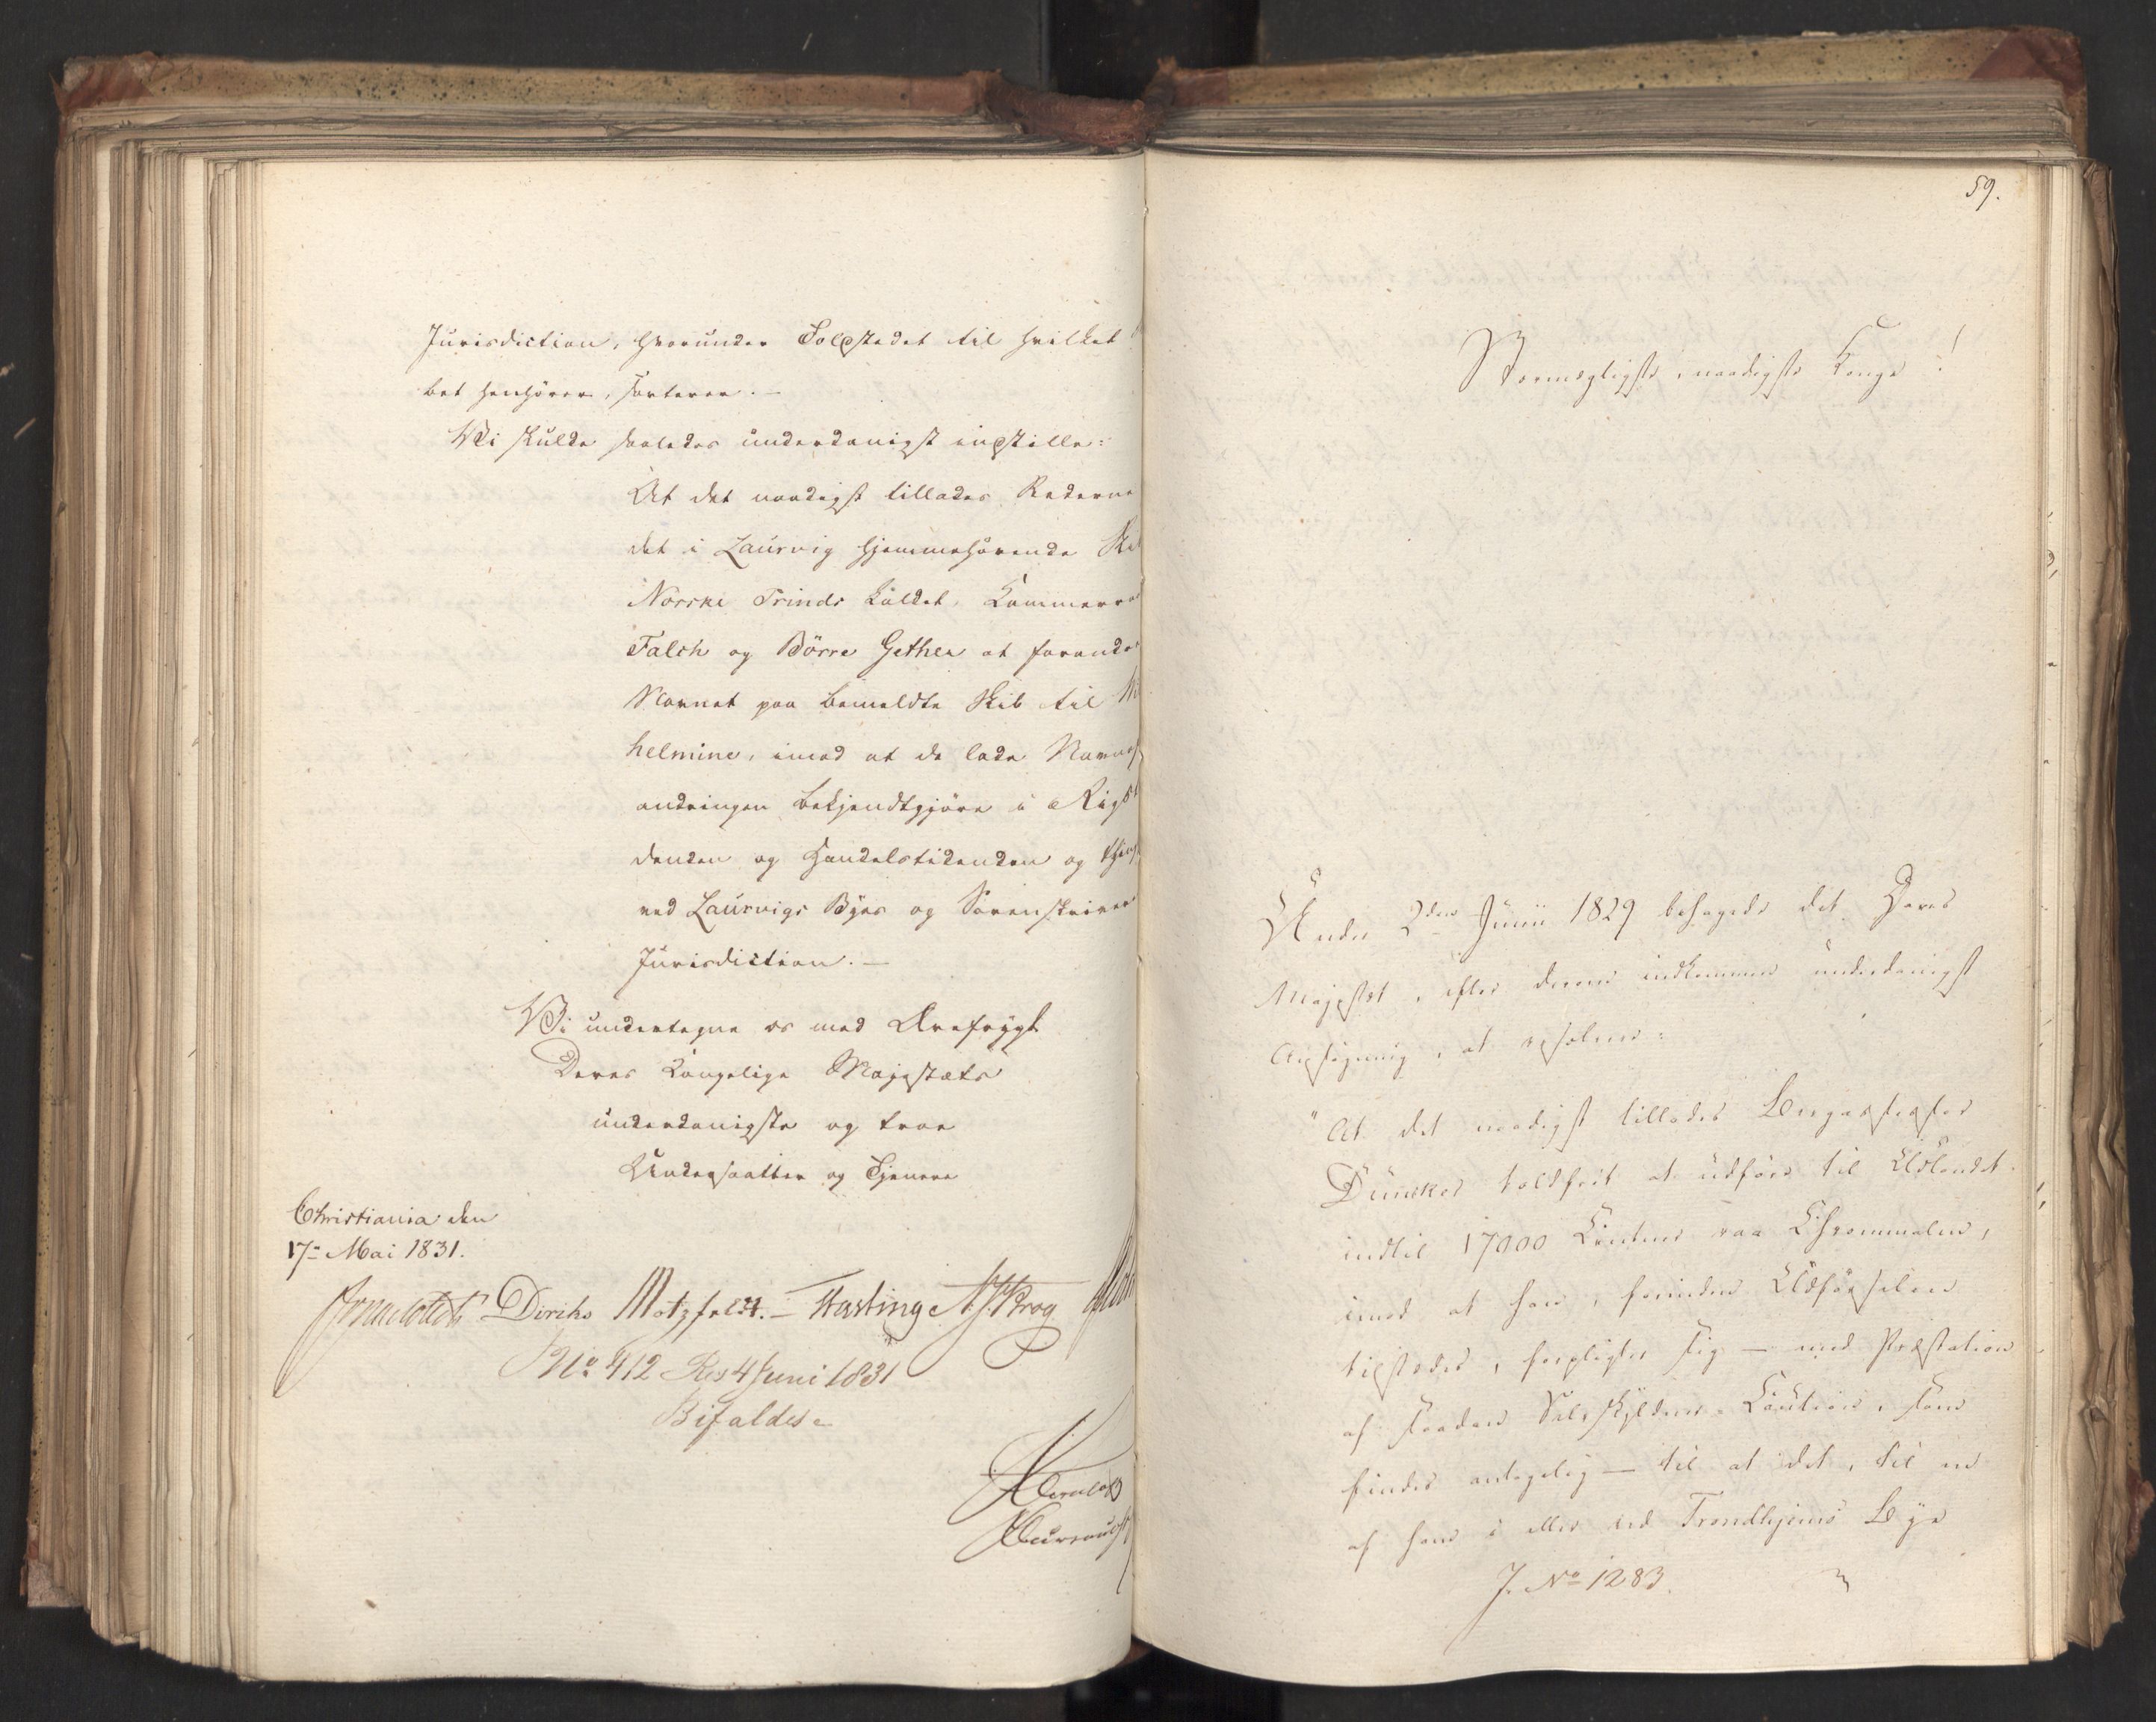 Jurisdiction, hvorunder Toldstedet til hvilket
bet henhörer, sorterer. —
Vi skulde saaledes underdanigst indstille:
At det naadigst tillades Rederne
det i Laurvig hjemmehörende Ski
Norske Prinds kaldet, Kammerra
Falch og Börre Gether at forandr
Navnet paa bemeldte Skib til Wi
helmine, imod at de lade Navnef
andringen bekjendtgjöre i Rigst
denden og Handelstidenden og thing
ved Laurvigs Byes og Sorenskriver
Jurisdiction. —
Vi undertegne os med Ærefrygt
Deres Kongelige Majestæts
underdanigste og troe
Undersaatter og Tjenere
Christiania den
17de Mai 1831.
Diriks Motzfeldt. — Hasting
No 412 Res 4 Juni 1831
Bifaldes
59.
Stormægtigste, naadigste Konge!
Under 2den Junii 1829 behagede det Deres
Majestæt, efter derom indkommen underdanigst
Ansøgning, at resolvere:
"At det naadigst tillades Bergassessor
Dunker toldfrit at udføre til Udlandet
indtil 17000 Centner raa Chrommalm,
imod at han, forinden Udførselen
tilstedes, forpligter sig — med Præstation
af saadan Selvskyldner-Caution, som
findes antagelig — til at det, til en
af ham i eller ved Trondhjems Bye
J. No 1283.